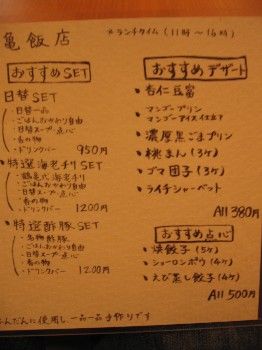 亀飯店
*ランチタイム (11時～16時)
おすすめSET
日替SET
・日替一品
・ごはんおかわり自由
・日替スープ・点心
・香の物
・ドリンクバー 950円
・特選海老チリSET
・亀竜式海老チリ
・ごはんおかわり自由
・日替スープ・点心
・香の物
・ドリンクバー 1200円
・特選酢豚SET
・名物酢豚
・ごはんおかわり自由
・日替スープ・点心
・香の物
・ドリンクバー 1200円
おすすめデザート
・杏仁豆腐
・マンゴープリン
マンゴーアイス仕立て
・濃厚黒ごまプリン
・桃まん (3ヶ)
・ゴマ団子 (3ヶ)
・ライチシャーベット
All 380円
おすすめ点心
・焼餃子 (5ヶ)
・ショーロンポウ (4ヶ)
・えび蒸し餃子 (4ヶ)
All 500円
んだんに使用し、一品一品手作りです